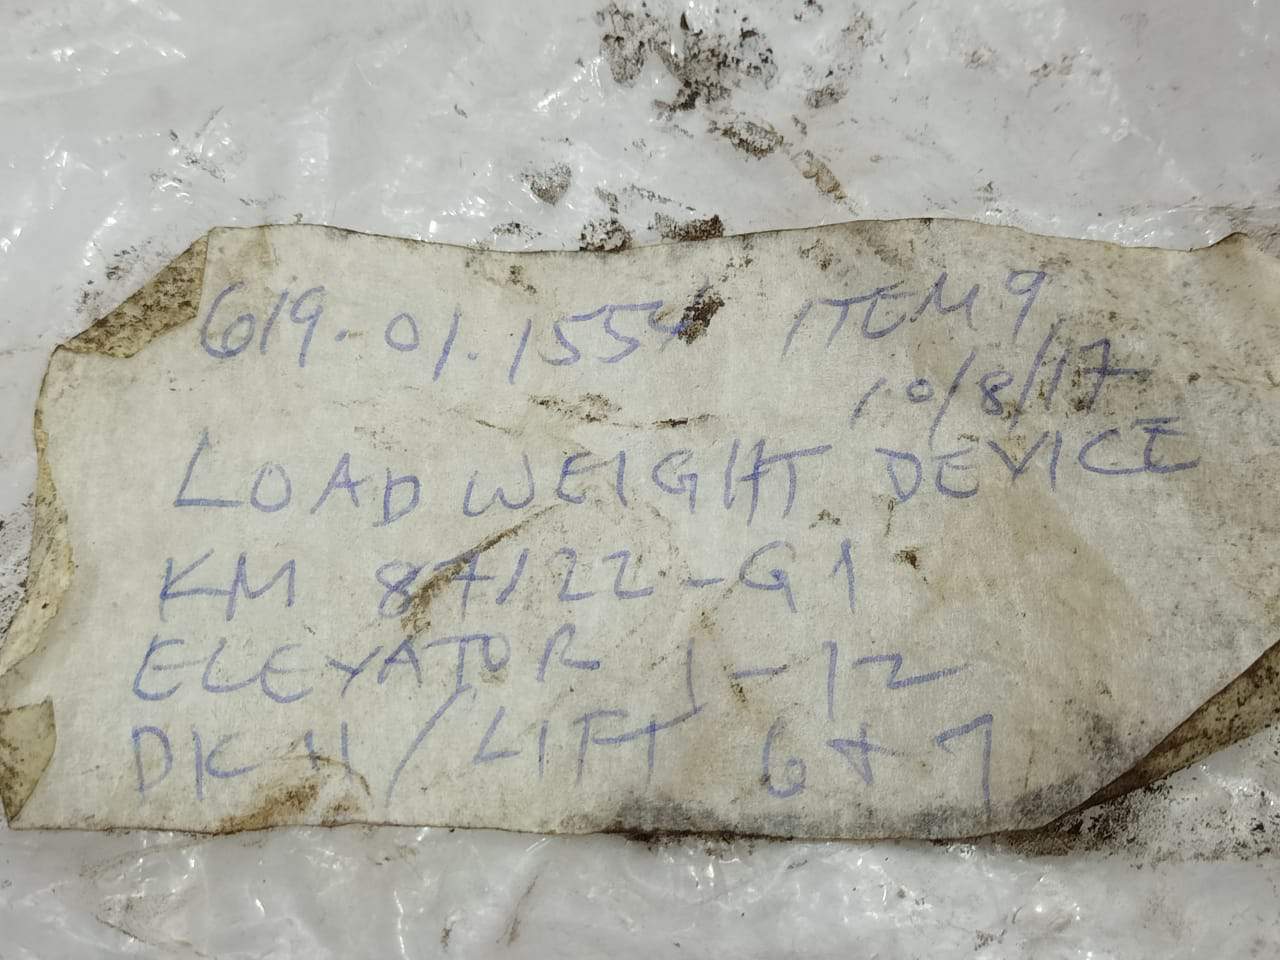 619.01.1554 ITEM 9
10/8/17
LOAD WEIGHT DEVICE
KM 87122-G1
ELEVATOR 1-12
DK 11/LIFT 6+7